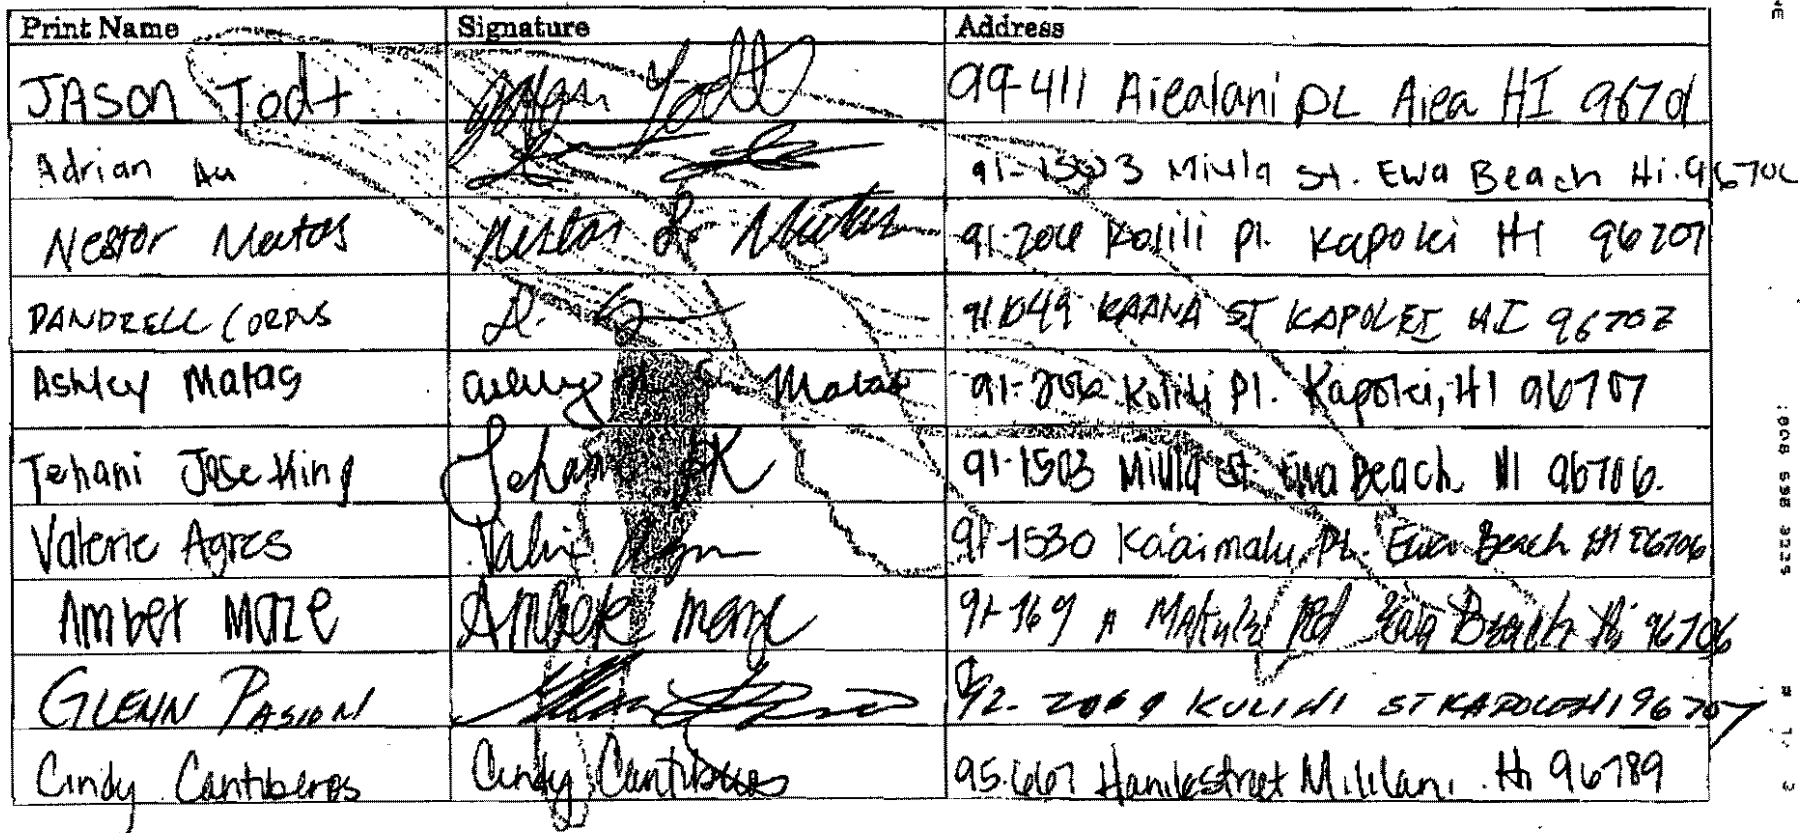 Print Name Signature Address
JASON Todt Jason Todt 99-411 Aiealani PL Aiea HI 96701
Adrian Au 91-1503 Miula St. Ewa Beach Hi. 96706
Nestor Matas Nestor Matas Pl. Kapolei HI 96707
DANDRELL CORPUS D. 91-1049 KAANA ST KAPOLEI HI 96707
Ashley Matas Ashley Matas Pl. Kapolei, HI 96707
Tehani Jose Tehani JK 91-1503 Miula St. Ewa Beach HI 96706.
Valerie Agres Valerie Agres 91-1530 Kaaimalu Pl. Ewa Beach HI 96706
Amber Maze Amber Maze 91-769 A Makule Rd Ewa Beach Hi 96706
GLENN PASION 92- KULIHI ST KAPOLEI HI 96707
Cindy Cantiberos Cindy Cantiberos 95-667 Hanile street Mililani. Hi 96789